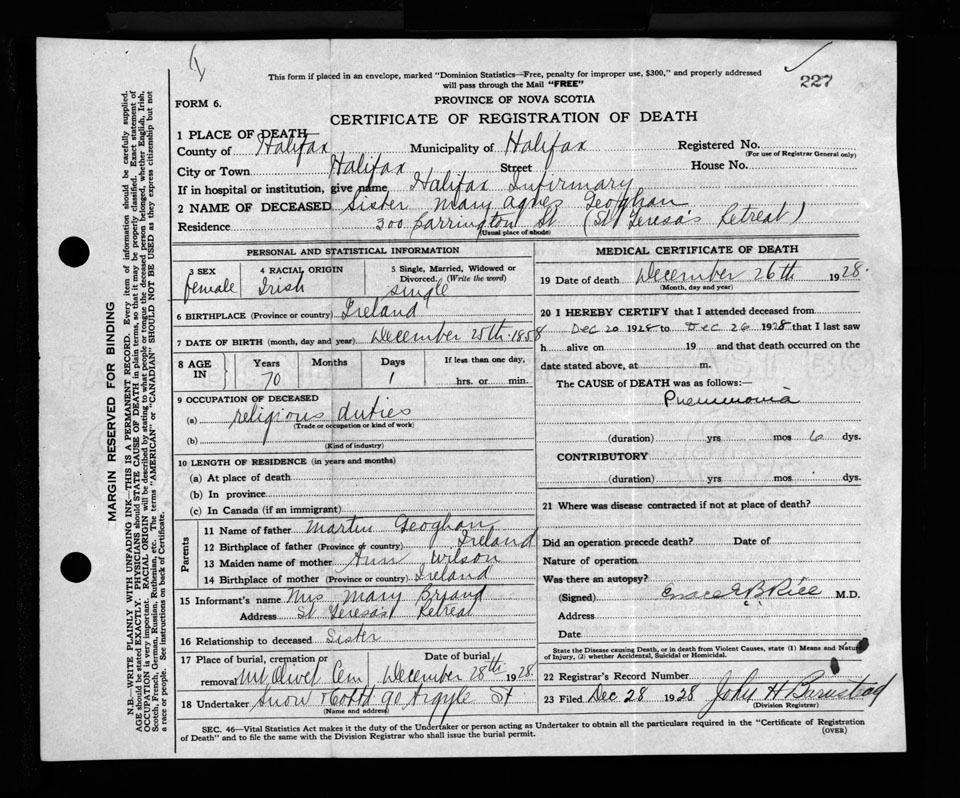 This form if placed in an envelope, marked "Dominion Statistics—Free, penalty for improper use, $300," and properly addressed
will pass through the Mail "FREE"
227
FORM 6.
PROVINCE OF NOVA SCOTIA
CERTIFICATE OF REGISTRATION OF DEATH
1 PLACE OF DEATH
County of Halifax Municipality of Halifax Registered No.
(For use of Registrar General only)
City or Town Halifax Street House No.
If in hospital or institution, give name Halifax Infirmary
2 NAME OF DECEASED Sister Mary Agnes Geoghan
Residence 300 Barrington St (St Teresa's Retreat)
(Usual place of abode)
PERSONAL AND STATISTICAL INFORMATION
3 SEX female
4 RACIAL ORIGIN Irish
5 Single, Married, Widowed or
Divorced. (Write the word)
single
6 BIRTHPLACE (Province or country) Ireland
7 DATE OF BIRTH (month, day and year) December 25th 1858
8 AGE IN Years Months Days If less than one day,
70 1 hrs. or min.
9 OCCUPATION OF DECEASED
(a) religious duties
(Trade or occupation or kind of work)
(b)
(Kind of industry)
10 LENGTH OF RESIDENCE (in years and months)
(a) At place of death
(b) In province
(c) In Canada (if an immigrant)
Parents
11 Name of father Martin Geoghan
12 Birthplace of father (Province or country) Ireland
13 Maiden name of mother Ann Wilson
14 Birthplace of mother (Province or country) Ireland
15 Informant's name Mrs Mary Briand
Address St Teresa's Retreat
16 Relationship to deceased Sister
17 Place of burial, cremation or Date of burial
removal Mt Olivet Cem December 28th 1928
18 Undertaker Snow & Co Ltd 90 Argyle St
(Name and address)
MEDICAL CERTIFICATE OF DEATH
19 Date of death December 26th 1928
(Month, day and year)
20 I HEREBY CERTIFY that I attended deceased from
Dec 20 1928 to Dec 26 1928 that I last saw
h alive on 19 and that death occurred on the
date stated above, at m.
The CAUSE of DEATH was as follows:—
Pneumonia
(duration) yrs mos 6 dys.
CONTRIBUTORY
(duration) yrs mos dys.
21 Where was disease contracted if not at place of death?
Did an operation precede death? Date of
Nature of operation
Was there an autopsy?
(Signed) M.D.
Address
Date
State the Disease causing Death, or in death from Violent Causes, state (1) Means and Nature
of Injury, (2) whether Accidental, Suicidal or Homicidal.
22 Registrar's Record Number
23 Filed Dec 28 1928 John H Barnstead
(Division Registrar)
SEC. 46—Vital Statistics Act makes it the duty of the Undertaker or person acting as Undertaker to obtain all the particulars required in the "Certificate of Registration
of Death" and to file the same with the Division Registrar who shall issue the burial permit.
(OVER)
MARGIN RESERVED FOR BINDING
N.B. WRITE PLAINLY WITH UNFADING INK—THIS IS A PERMANENT RECORD. Every item of information should be carefully supplied.
AGE should be stated EXACTLY. PHYSICIANS should STATE CAUSE OF DEATH in plain terms, so that it may be properly classified. Exact statement of
OCCUPATION is very important. RACIAL ORIGIN will be described by stating to what people or tongue the deceased person belonged, whether English, Irish,
Scotch, French, German, Russian, Ruthenian, etc. The terms "AMERICAN" or "CANADIAN" SHOULD NOT BE USED as they express citizenship but not
a race or people. See instructions on back of Certificate.